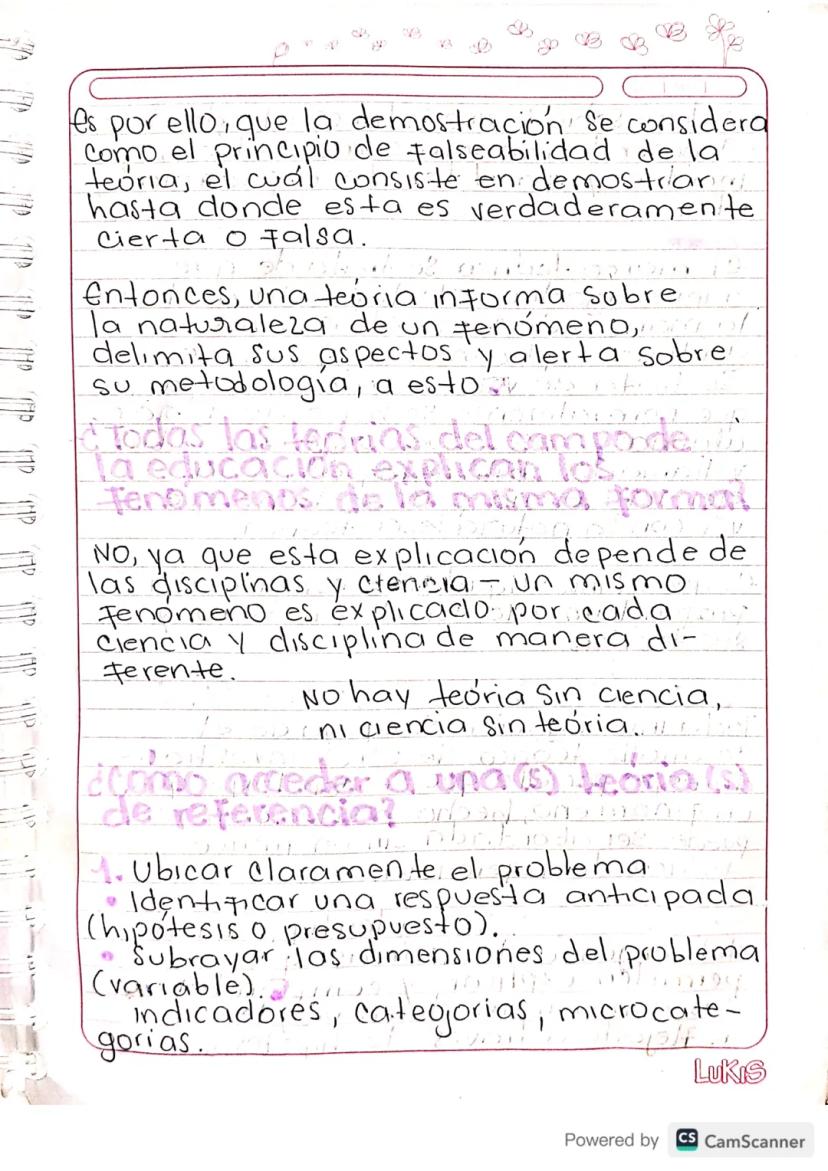 es por ello, que la demostración se considera
como el principio de falseabilidad de la
teória, el cuál consiste en demostrar
hasta donde esta es verdaderamente
cierta o falsa.
Entonces, una teória informa sobre
la naturaleza de un fenómeno,
delimita sus aspectos y alerta sobre
su metodología, a esto.
¿Todas las teórias del campo de
la educación explican los
fenomenos de la misma forma?
NO, ya que esta explicación depende de
las disciplinas y ciencia - un mismo
fenómeno es explicado por cada
ciencia y disciplina de manera di-
ferente.
NO hay teória sin ciencia,
ni ciencia sin teória.
¿Cómo acceder a una(s) teória(s)
de referencia?
1. Ubicar claramente el problema
• Identificar una respuesta anticipada
(hipótesis o presupuesto).
• Subrayar las dimensiones del problema
(variable).
Indicadores, categorias, microcate-
gorias.
LUKIS
Powered by CS CamScanner